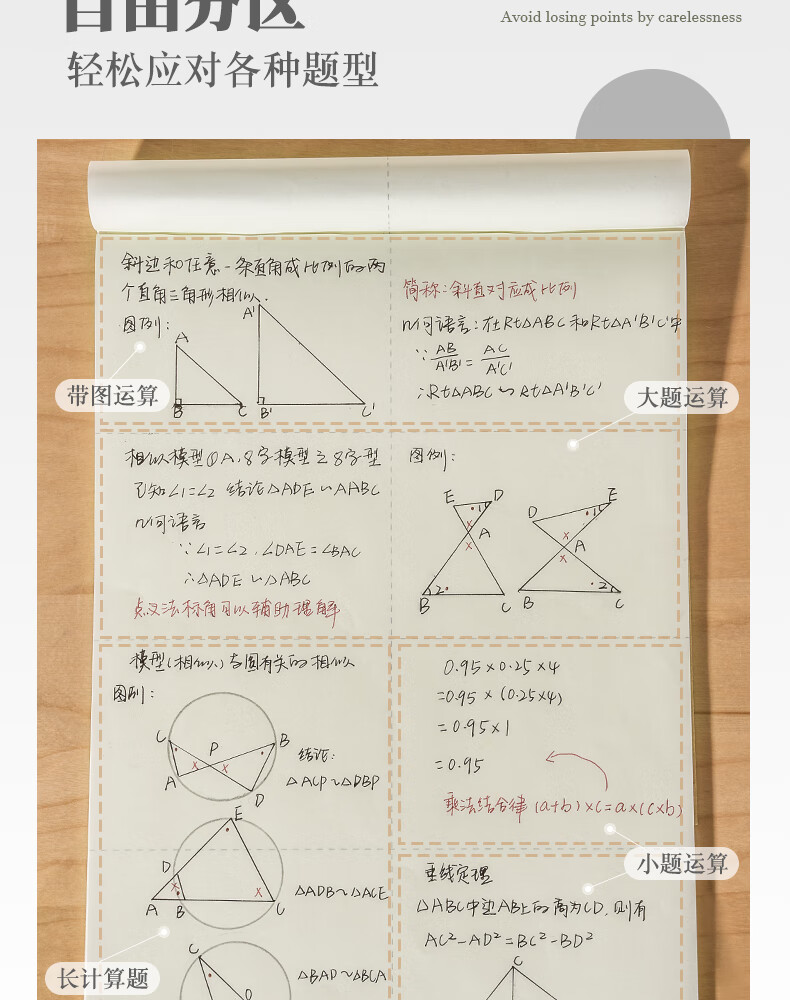 自由分区
Avoid losing points by carelessness
轻松应对各种题型
斜边和任意一条直角成比例的两
个直角三角形相似.
图例:
A
B
C
A'
B'
C'
带图运算
简称:斜直对应成比例
几何语言:在Rt△ABC和Rt△A'B'C'中
∵ AB/A'B' = AC/A'C'
∴Rt△ABC∽Rt△A'B'C'
大题运算
相似模型①A,8字模型之8字型
已知∠1=∠2 结论△ADE∽△ABC
几何语言
∵∠1=∠2,∠DAE=∠BAC
∴△ADE∽△ABC
点叉法标角可以辅助理解
图例:
E
D
1
A
2
B
C
E
D
1
A
2
B
C
模型(相似)与圆有关的相似
图例:
C
P
B
A
D
结论:
△ACP~△DBP
E
D
A
B
C
△ADB~△ACE
C
D
△BAD~△BCA
长计算题
0.95×0.25×4
=0.95×(0.25×4)
=0.95×1
=0.95
乘法结合律(a+b)×c=a×(c×b)
小题运算
垂线定理
△ABC中边AB上的高为CD,则有
AC²-AD²=BC²-BD²
C